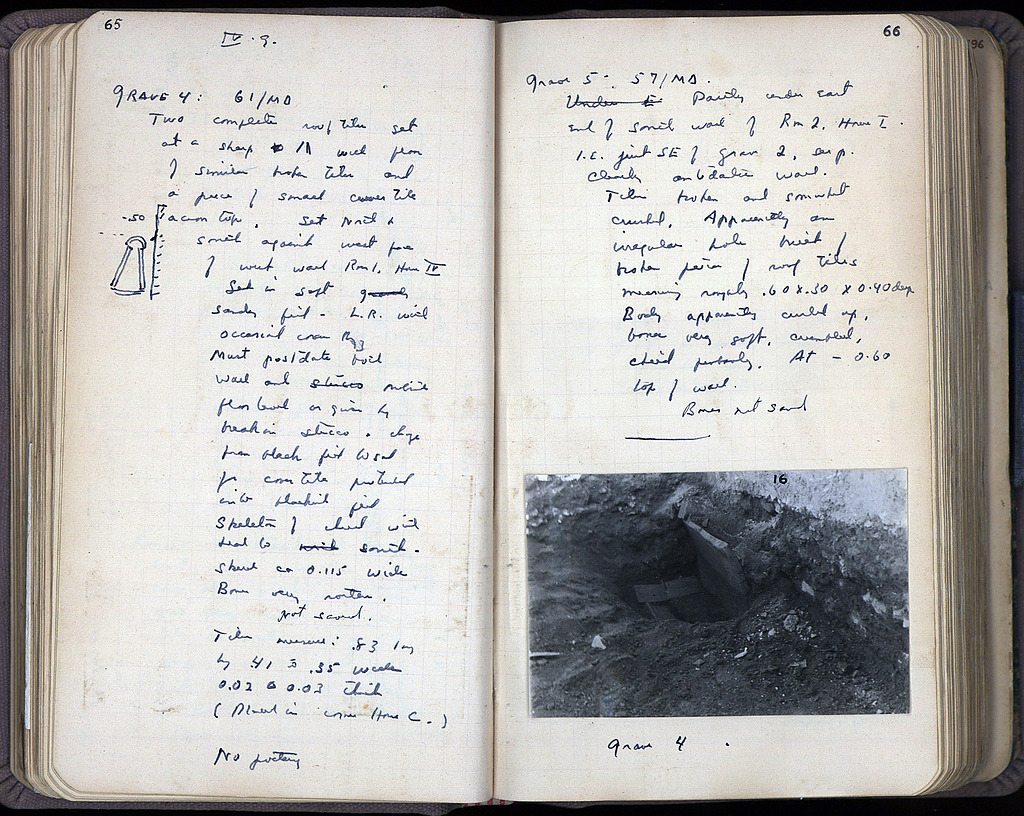 65
IV. 9.
GRAVE 4: 61/MD
Two complete roof tiles set
at a sharp /\ with floor
of similar broken tiles and
a piece of small cover tile
-.50
across top. Set North &
south against west face
of west wall Rm 1, House IV
Set in soft
sandy fill - L.R. with
occasional coarse Byz
Must postdate both
wall and stucco
floor level as given by
break in stucco & change
from black fill to
for cover tile protruded
into blackish fill
Skeleton of child with
head to south.
Skull ca 0.115 wide
Bones very rotten.
Not saved.
Tiles measure: .83 long
by 41 to .35 wide
0.02 to 0.03 thick
(Placed in corner House C.)
No pottery
66
Grave 5: 57/MD.
Under E Partly under east
end of south wall of Rm 2, House I.
I.e. just SE of Grave 2, see p.
Clearly antedates wall.
Tiles broken and somewhat
crushed. Apparently an
irregular hole built of
broken pieces of roof tiles
measuring roughly .60 x .30 x 0.40 deep
Body apparently curled up,
bones very soft, crumbled,
child probably. At - 0.60
top of wall.
Bones not saved
16
Grave 4.
96